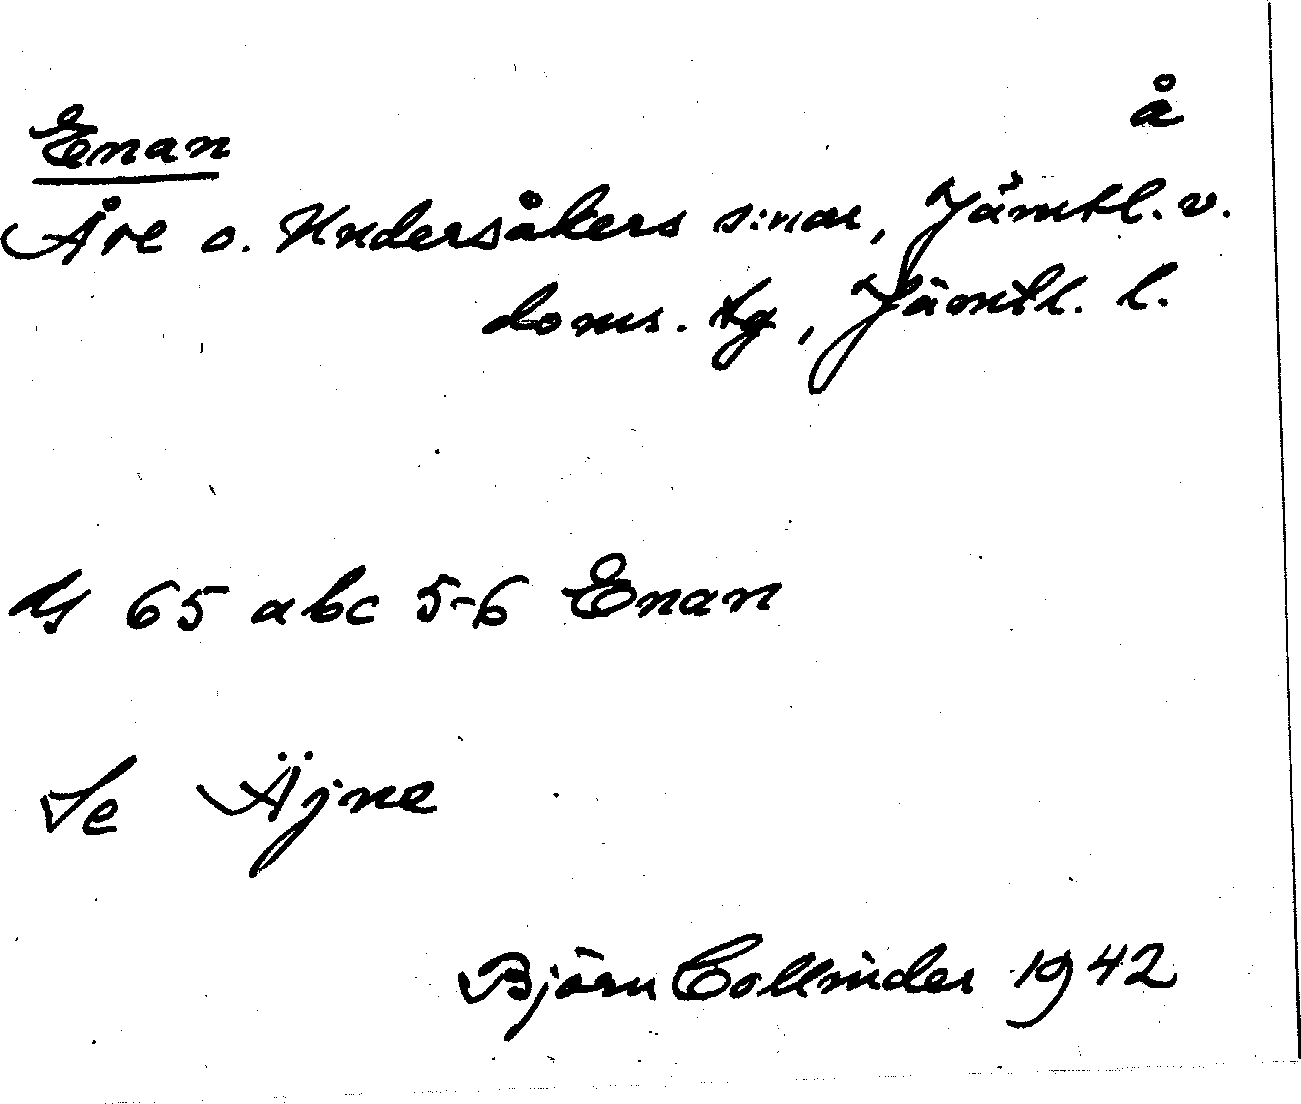 å
Enan
Åre o. Undersåkers s:nar, Jämtl. v.
doms. tg, Jämtl. l.
ds 65 abc 5-6 Enan
Se Äjne
Björn Collinder 1942